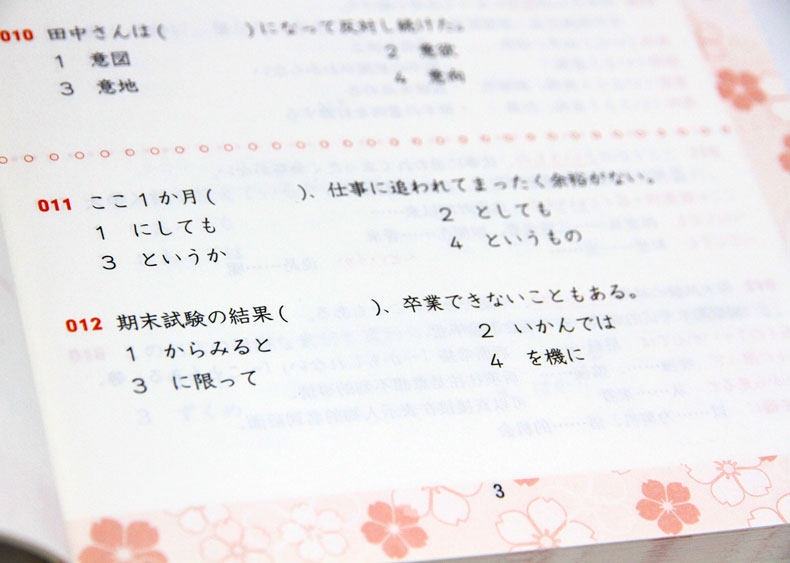 010 田中さんは(　　　)になって反対し続けた。
1 意図　2 意欲
3 意地　4 意向
011 ここ1か月(　　　)、仕事に追われてまったく余裕がない。
1 にしても　2 としても
3 というか　4 というもの
012 期末試験の結果(　　　)、卒業できないこともある。
1 からみると　2 いかんでは
3 に限って　4 を機に
3